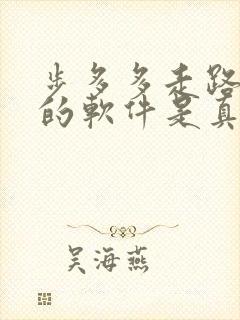 步多多走路
的軟件是真
吴海燕